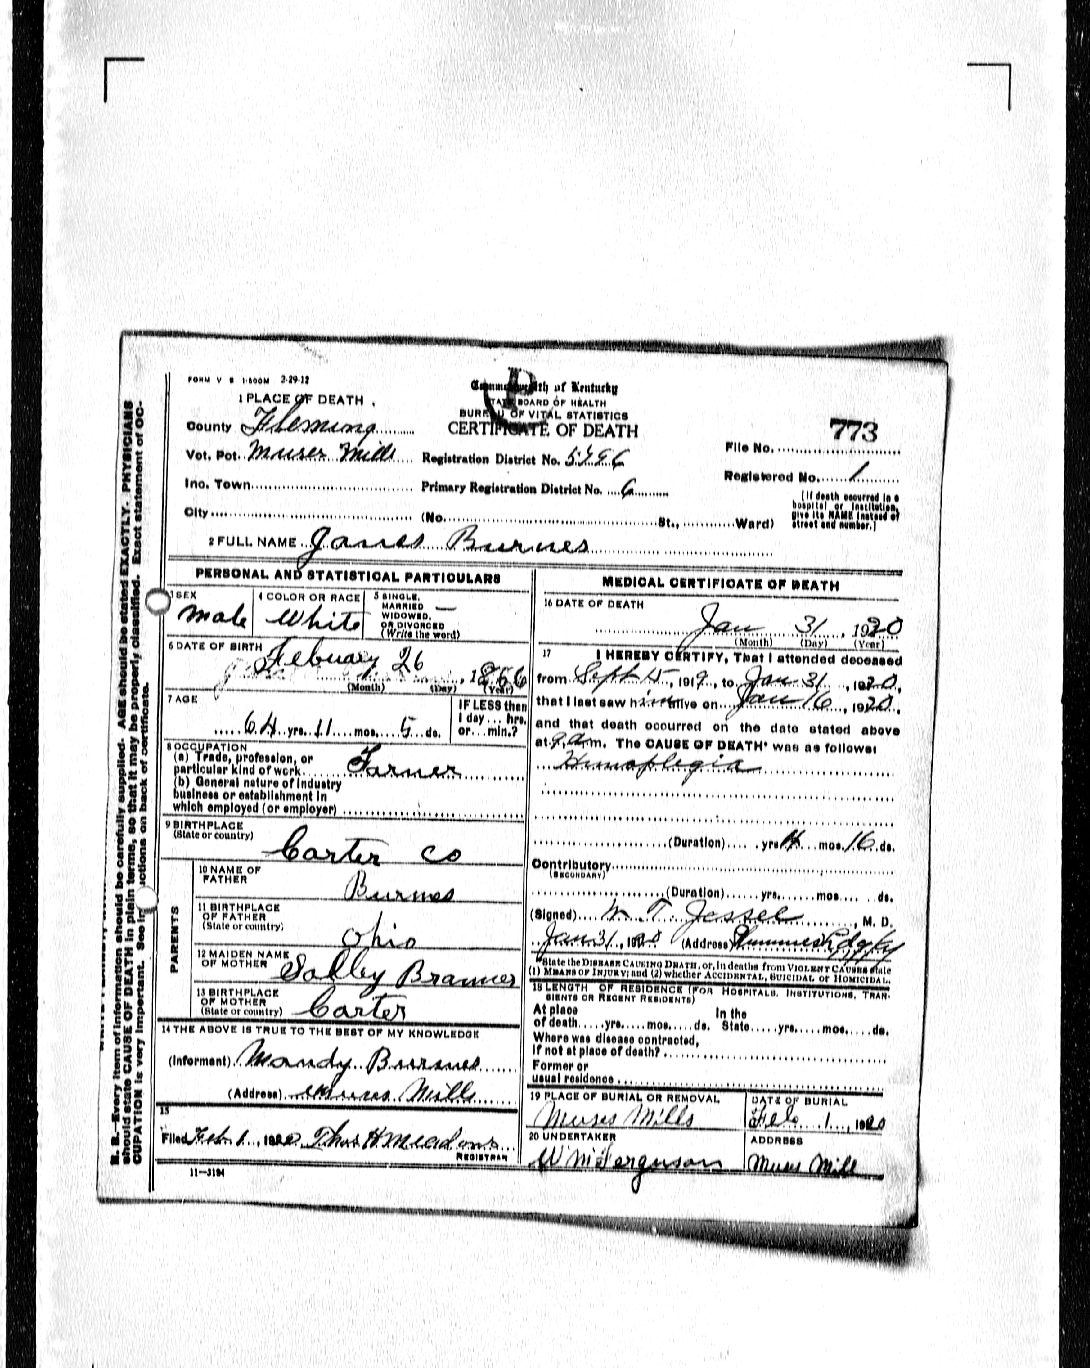 FORM V S 1-500M 2-29-12
Commonwealth of Kentucky
STATE BOARD OF HEALTH
BUREAU OF VITAL STATISTICS
CERTIFICATE OF DEATH
1 PLACE OF DEATH
County Fleming
Vot. Pct. Muses Mills
Inc. Town
City
Registration District No. 5796
Primary Registration District No. 6
(No. St., Ward)
File No. 773
Registered No. 1
[If death occurred in a
hospital or institution,
give its NAME instead of
street and number.]
2 FULL NAME James Burnes
PERSONAL AND STATISTICAL PARTICULARS
3 SEX
Male
4 COLOR OR RACE
White
5 SINGLE,
MARRIED
WIDOWED,
OR DIVORCED
(Write the word)
6 DATE OF BIRTH
Febuary 26, 1866
(Month) (Day) (Year)
7 AGE
64 yrs. 11 mos. 5 ds.
IF LESS than
1 day... hrs.
or... min.?
8 OCCUPATION
(a) Trade, profession, or
particular kind of work Farmer
(b) General nature of industry
business or establishment in
which employed (or employer)
9 BIRTHPLACE
(State or country)
Carter Co
PARENTS
10 NAME OF
FATHER
Burnes
11 BIRTHPLACE
OF FATHER
(State or country)
Ohio
12 MAIDEN NAME
OF MOTHER
Salley
13 BIRTHPLACE
OF MOTHER
(State or country)
Carter
14 THE ABOVE IS TRUE TO THE BEST OF MY KNOWLEDGE
(Informant) Mandy Burnes
(Address) Muses Mills
15
Filed Feb 1, 1920 Thos H Meadows
REGISTRAR
11—3184
MEDICAL CERTIFICATE OF DEATH
16 DATE OF DEATH
Jan 31, 1920
(Month) (Day) (Year)
17 I HEREBY CERTIFY, That I attended deceased
from Sept 15, 1919, to Jan 31, 1920,
that I last saw him alive on Jan 16, 1920,
and that death occurred on the date stated above
at 9 a.m. The CAUSE OF DEATH* was as follows:
Hemaplegia
(Duration) yrs. 4 mos. 16 ds.
Contributory
(SECONDARY)
(Duration) yrs. mos. ds.
(Signed) W. T. Jessel, M. D.
Jan 31, 1920 (Address)
*State the DISEASE CAUSING DEATH, or, in deaths from VIOLENT CAUSES state
(1) MEANS OF INJURY; and (2) whether ACCIDENTAL, SUICIDAL or HOMICIDAL.
18 LENGTH OF RESIDENCE (FOR HOSPITALS, INSTITUTIONS, TRAN-
SIENTS OR RECENT RESIDENTS)
At place In the
of death yrs. mos. ds. State yrs. mos. ds.
Where was disease contracted,
if not at place of death?
Former or
usual residence
19 PLACE OF BURIAL OR REMOVAL
Muses Mills
DATE OF BURIAL
Feb 1, 1920
20 UNDERTAKER
W M Ferguson
ADDRESS
Muses Mill
N. B.—Every item of information should be carefully supplied. AGE should be stated EXACTLY. PHYSICIANS
should state CAUSE OF DEATH in plain terms, so that it may be properly classified. Exact statement of OC-
CUPATION is very important. See instructions on back of certificate.